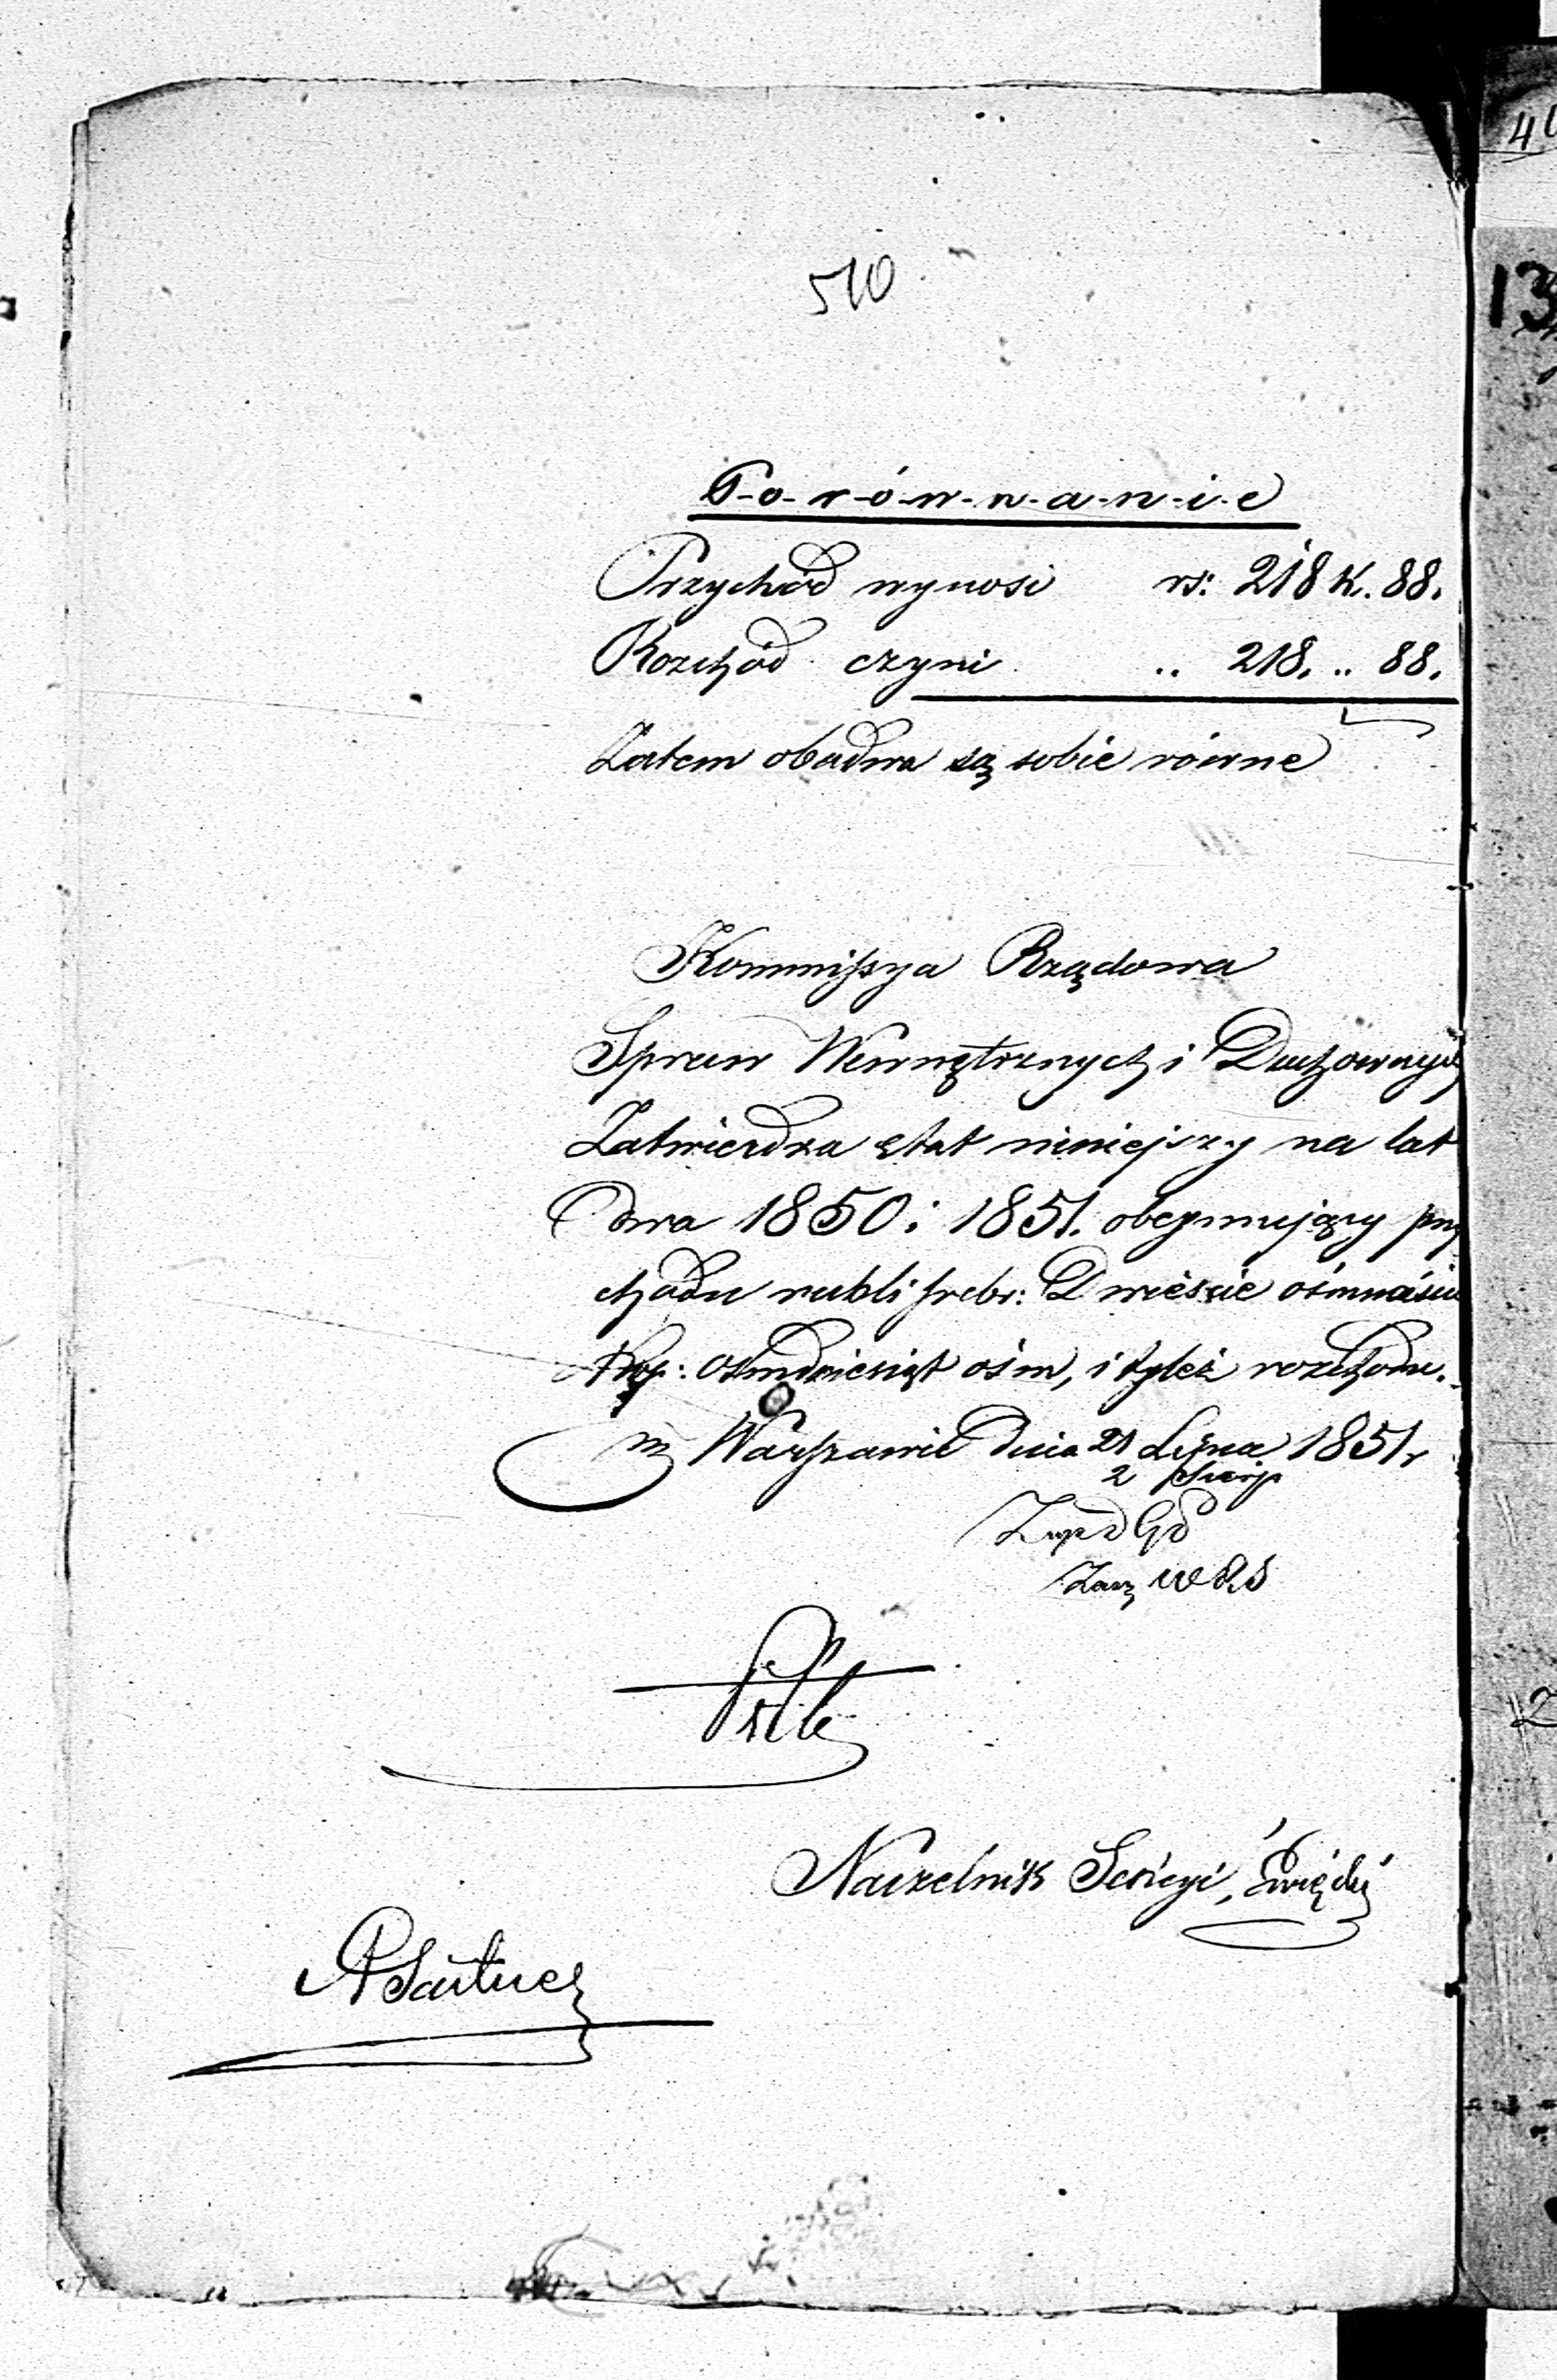 510
P-o-r-ó-w-n-a-n-i-e
Przychód wynosi rs: 218 K. 88.
Rozchód czyni .. 218. .. 88.
Zatem obadwa są sobie równe
Kommissya Rządowa
Spraw Wewnętrznych i Duchownych
Zatwierdza etat niniejszy na lat
dwa 1850 i 1851. obejmujący przy
chodu rubli srebr: Dwieście ośmnaście
Kop: ośmdziesiąt ośm, i tyleż rozchodu.
w Warszawie dnia 21 Lipca 1851 r
2 Sierp
Naczelnik Sekcyi,
13